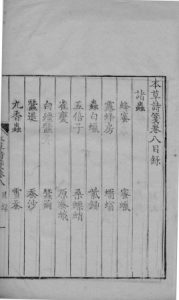 本草詩箋卷八目錄
諸蟲
蜂蜜 蜜蠟
露蜂房
蟲白蠟 紫鉚
五倍子 桑螵蛸
雀甕 原蠶蛾
白殭蠶 蠶繭
蠶退 蚕沙
九香蟲 雪蠶